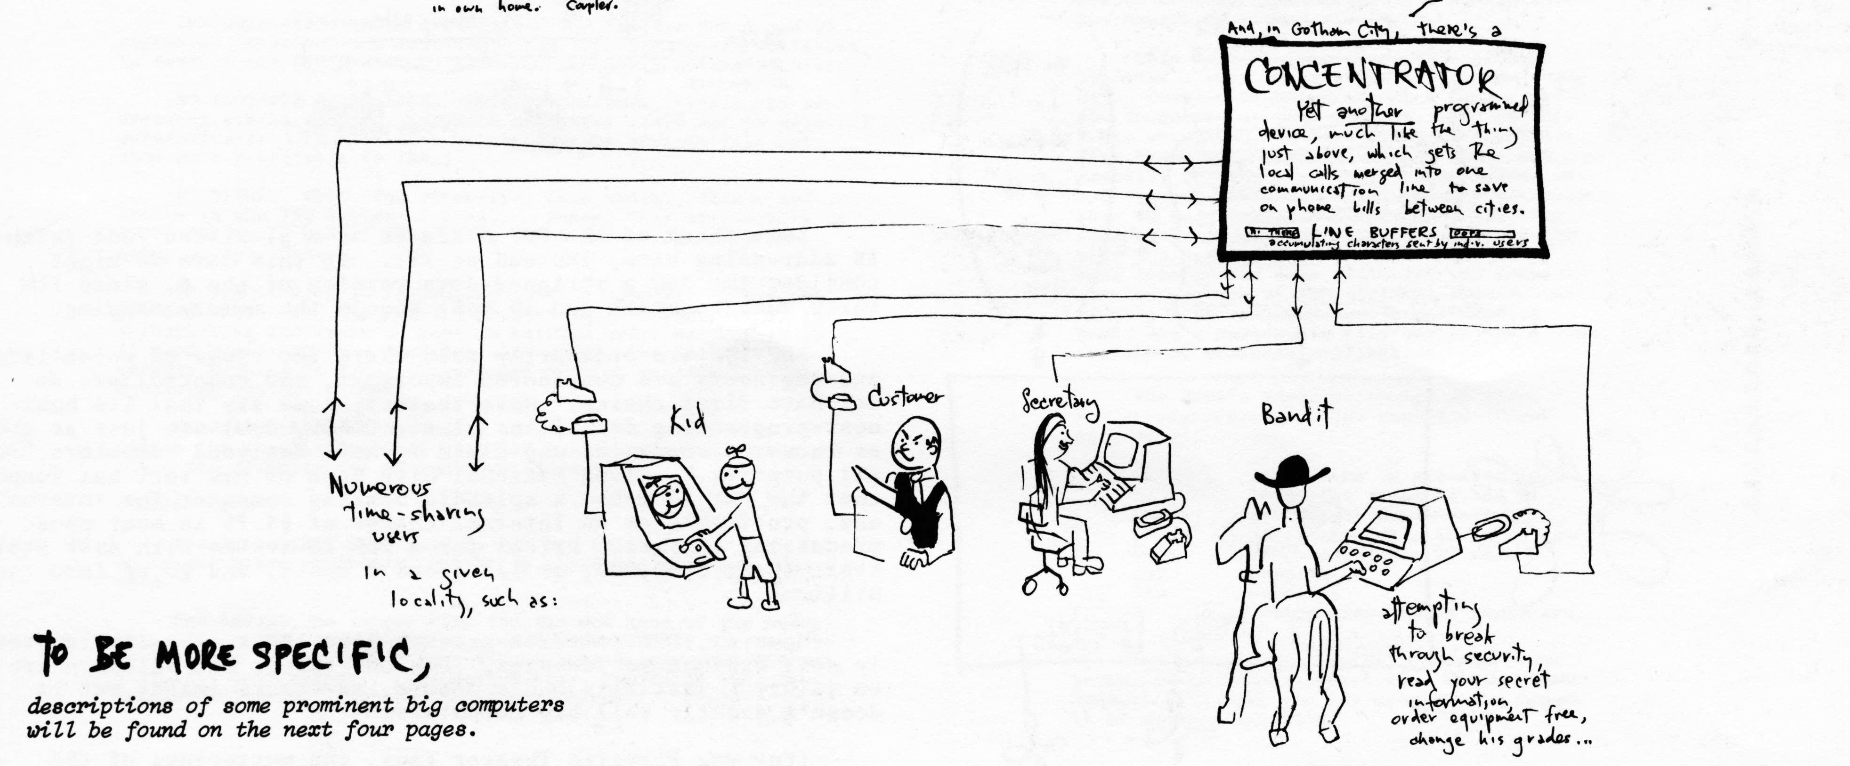 in own home. Coupler.
And, in Gotham City, there's a
CONCENTRATOR
Yet another programmed
device, much like the thing
just above, which gets the
local calls merged into one
communication line to save
on phone bills between cities.
HI THERE LINE BUFFERS OOPS
accumulating characters sent by indiv. users
Kid
Customer
Secretary
Bandit
Numerous
time-sharing
users
in a given
locality, such as:
attempting
to break
through security,
read your secret
information,
order equipment free,
change his grades...
TO BE MORE SPECIFIC,
descriptions of some prominent big computers
will be found on the next four pages.